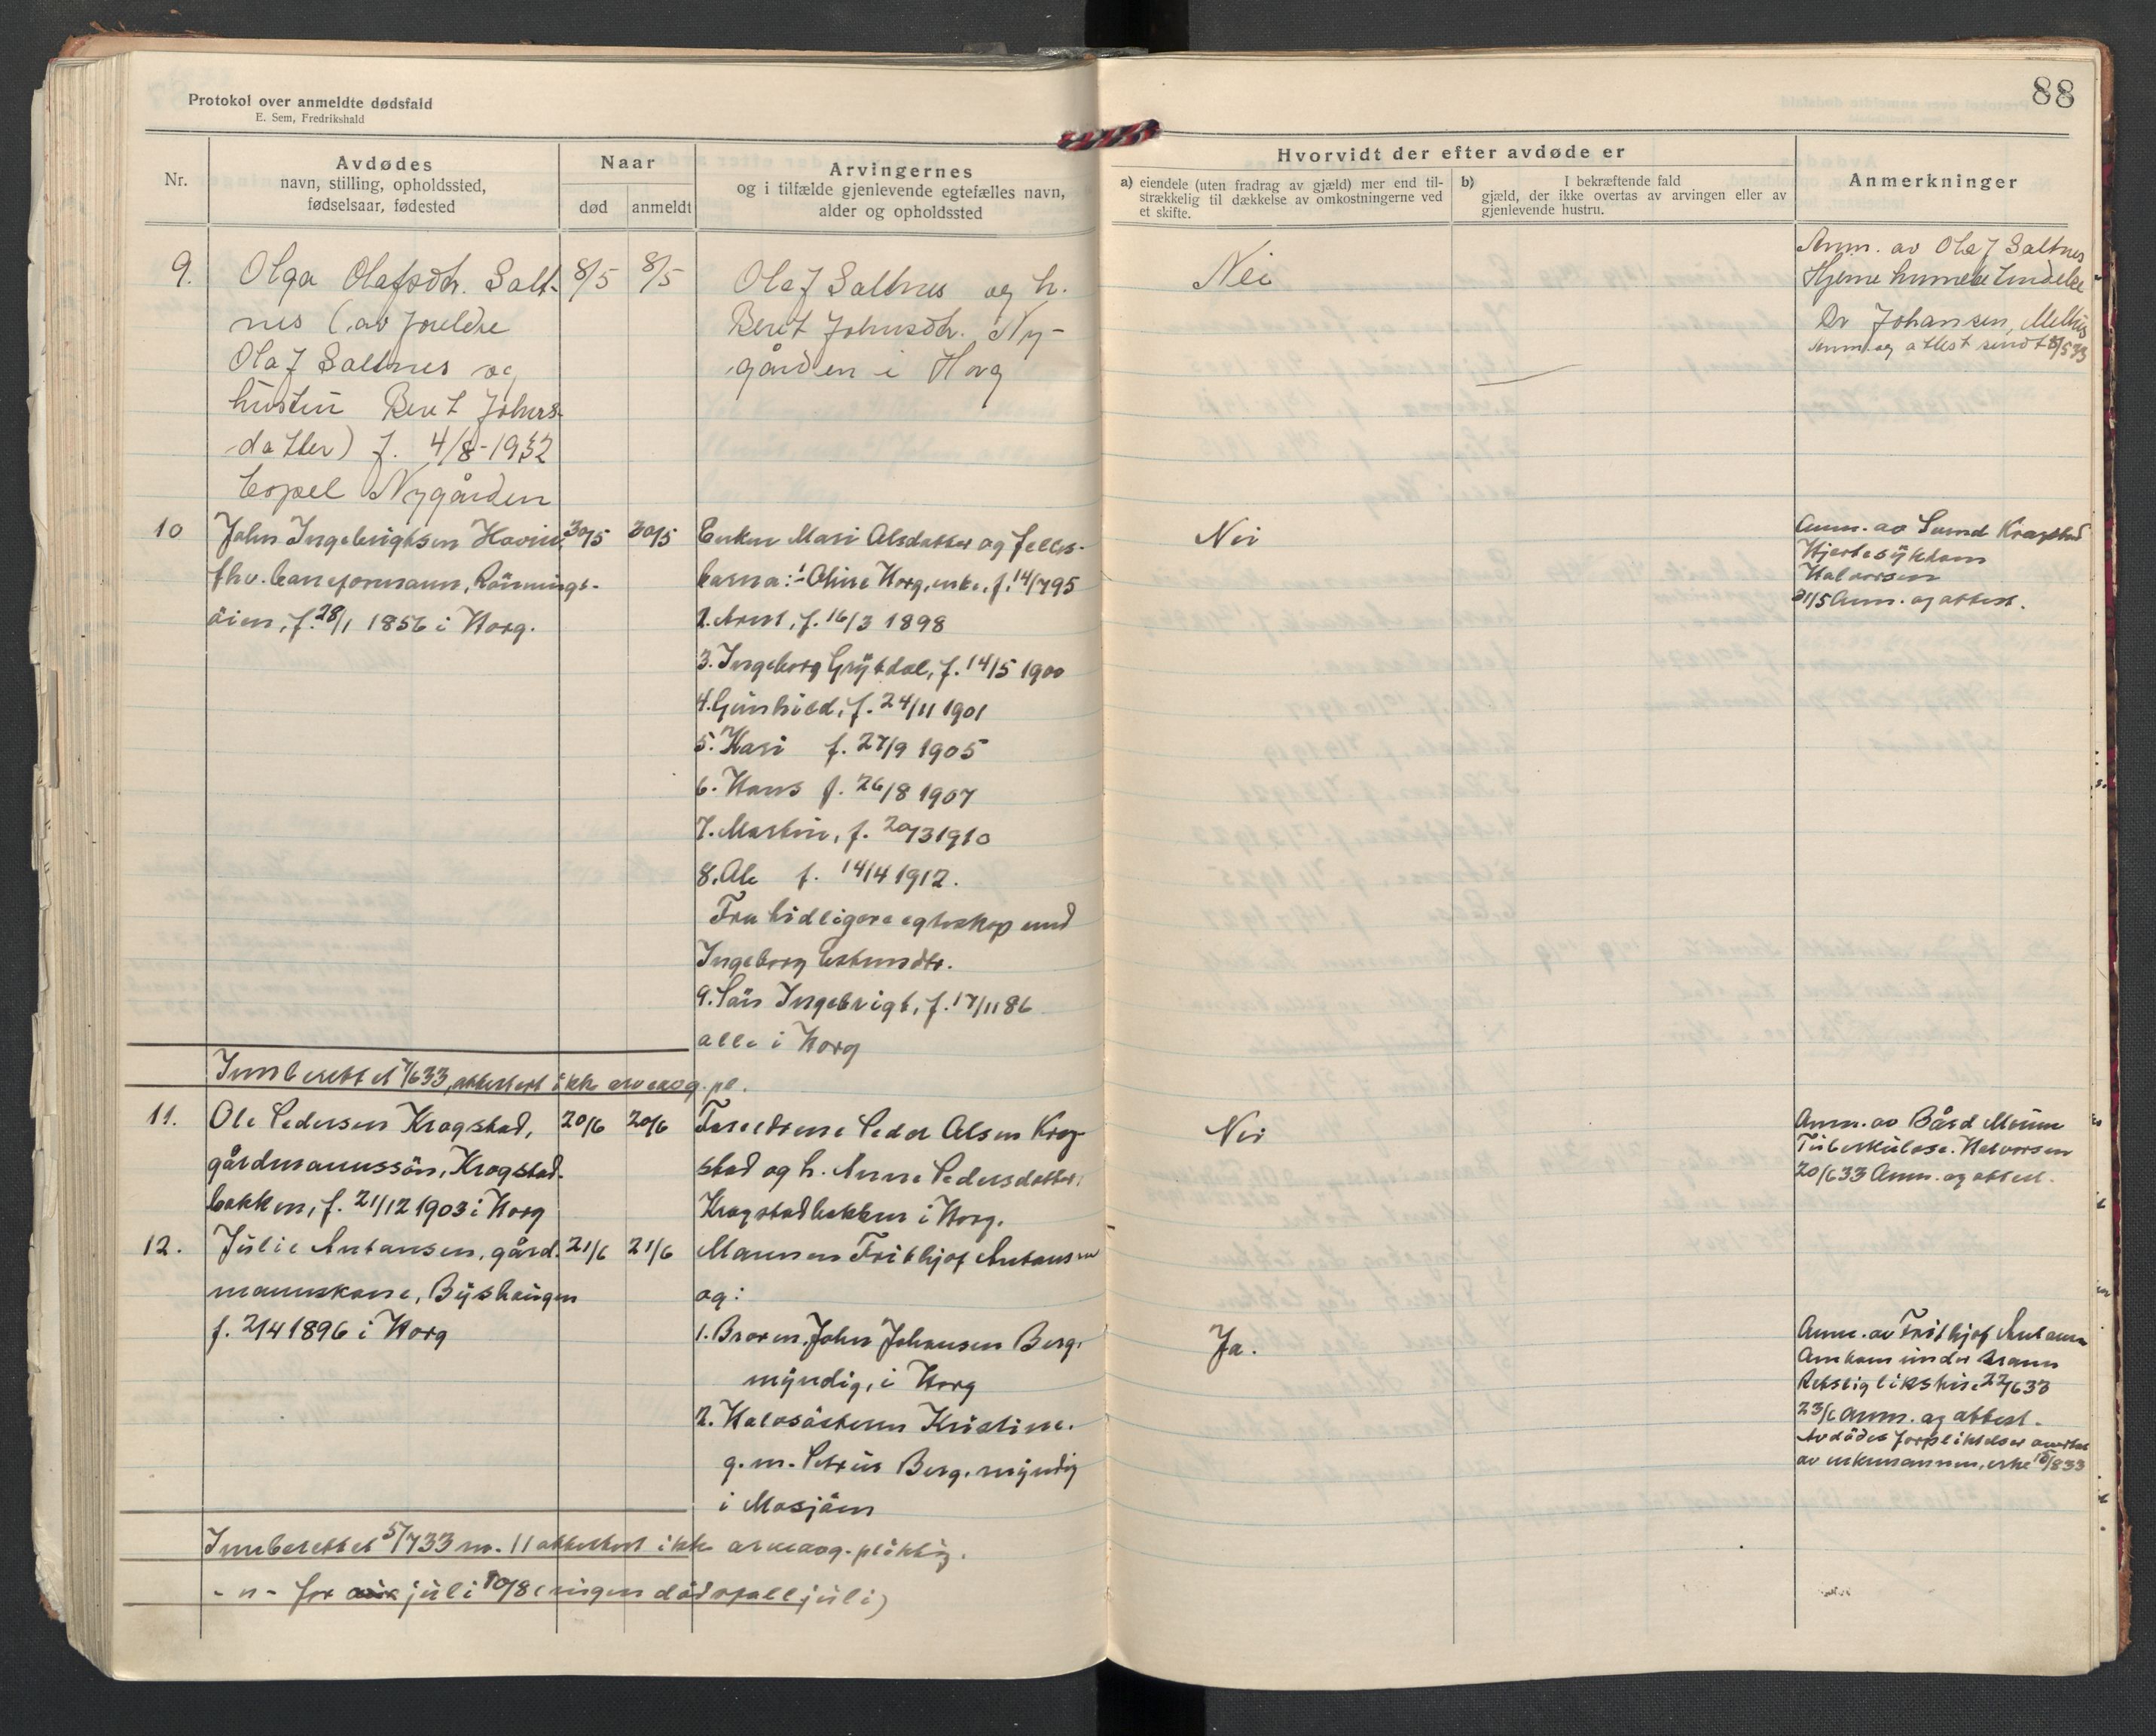 88
Protokol over anmeldte dødsfald
E. Sem, Fredrikshald
Nr.
Avdødes
navn, stilling, opholdssted,
fødselsaar, fødested
Naar
død
anmeldt
Arvingernes
og i tilfælde gjenlevende egtefælles navn,
alder og opholdssted
Hvorvidt der efter avdøde er
a) eiendele (uten fradrag av gjæld) mer end til-
strækkelig til dækkelse av omkostningerne ved
et skifte.
b) I bekræftende fald
gjæld, der ikke overtas av arvingen eller av
gjenlevende hustru.
Anmerkninger
9.
Olga Olafsdtr. Salt-
nes (av foreldre
Olaf Saltnes og
hustru Beret Johns-
datter) f. 4/8-1932
Nygården
8/5
8/5
Olaf Saltnes og h.
Beret Johnsdtr. Ny-
gården i Horg
Nei
Anm. av Olaf Saltnes
Hjernehinnebetendelse
Dr Johansen, Melhus
Anm. og attest sendt 8/5 33
10
John Ingebrigtsen Havin,
fhv. baneformann, Rönnings-
öien, f. 28/1 1856 i Horg.
30/5
30/5
Enken Mari Olsdatter og felles-
barna: 1. Oline Horg, enke, f. 14/7 95
2. Arnt, f. 16/3 1898
3. Ingeborg Grytdal, f. 14/5 1900
4. Gunhild, f. 24/11 1901
5. Kari f. 27/9 1905
6. Hans f. 26/8 1907
7. Martin, f. 20/3 1910
8. Ole f. 14/4 1912.
Fra tidligere egteskap med
Ingeborg Estensdtr.
9. Sön Ingebrigt, f. 17/11 86
alle i Horg
Nei
Anm. av Svend Kragstad
Hjertesykdom
Halvorsen
31/5 Anm. og attest.
Innberettet 7/6 33, attestert ikke arveavg. pl.
11.
Ole Pedersen Kragstad,
gårdmannssön, Kragstad-
bakken, f. 21/12 1903 i Horg
20/6
20/6
Foreldrene Peder Olsen Krag-
stad og h. Anne Pedersdatter,
Kragstadbakken i Horg.
Nei
Anm. av Bård Moum
Tuberkulose. Halvorsen
20/6 33 Anm. og attest.
12.
Julie Antonsen, gård-
mannskone, Byshaugen
f. 2/4 1896 i Horg
21/6
21/6
Mannen Frithjof Antonsen
og:
1. Broren John Johansen Berg,
myndig, i Horg
2. Halvsösteren Kristine,
g. m. Petrus Berg, myndig
i Mosjöen
Ja.
Anm. av Frithjof Antonsen
Omkom under brann
Rettslig likskue 22/6 33
23/6 Anm. og attest.
Avdödes forpliktelser overtat
av enkemannen, erkl 15/8 33
Innberettet 5/7 33 nr. 11 attestert ikke arveavg. pliktig.
- " - for juli 10/8 (ingen dödsfall juli)